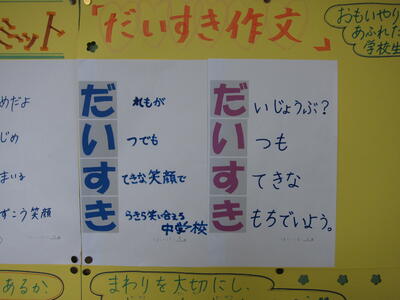 ミット
「だいすき作文」
おもいやり
あふれた
学校生
めだよ
じめ
まいる
ずごう笑顔
だれもが
いつでも
すてきな笑顔で
きらきら笑い合える
中学校
だいじょうぶ？
いつも
すてきな
きもちでいよう。
あるか
まわりを大切にし、